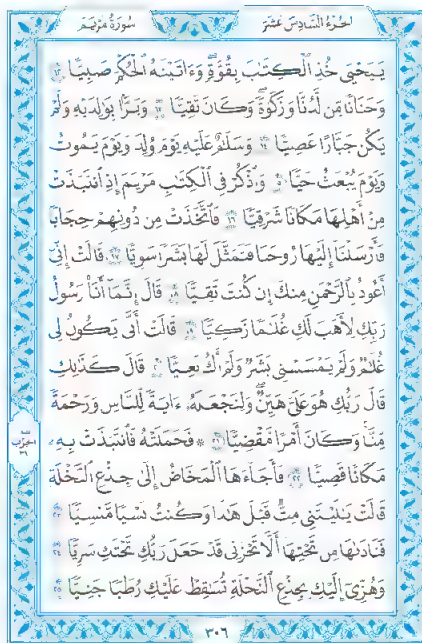 الجزء السادس عشر
سورة مريم
يَٰيَحْيَىٰ خُذِ ٱلْكِتَٰبَ بِقُوَّةٍۖ وَءَاتَيْنَٰهُ ٱلْحُكْمَ صَبِيًّا ١٢
وَحَنَانًا مِّن لَّدُنَّا وَزَكَوٰةًۖ وَكَانَ تَقِيًّا ١٣ وَبَرًّۢا بِوَٰلِدَيْهِ وَلَمْ
يَكُن جَبَّارًا عَصِيًّا ١٤ وَسَلَٰمٌ عَلَيْهِ يَوْمَ وُلِدَ وَيَوْمَ يَمُوتُ
وَيَوْمَ يُبْعَثُ حَيًّا ١٥ وَٱذْكُرْ فِى ٱلْكِتَٰبِ مَرْيَمَ إِذِ ٱنتَبَذَتْ
مِنْ أَهْلِهَا مَكَانًا شَرْقِيًّا ١٦ فَٱتَّخَذَتْ مِن دُونِهِمْ حِجَابًا
فَأَرْسَلْنَآ إِلَيْهَا رُوحَنَا فَتَمَثَّلَ لَهَا بَشَرًا سَوِيًّا ١٧ قَالَتْ إِنِّىٓ
أَعُوذُ بِٱلرَّحْمَٰنِ مِنكَ إِن كُنتَ تَقِيًّا ١٨ قَالَ إِنَّمَآ أَنَا۠ رَسُولُ
رَبِّكِ لِأَهَبَ لَكِ غُلَٰمًا زَكِيًّا ١٩ قَالَتْ أَنَّىٰ يَكُونُ لِى
غُلَٰمٌ وَلَمْ يَمْسَسْنِى بَشَرٌ وَلَمْ أَكُ بَغِيًّا ٢٠ قَالَ كَذَٰلِكِ
قَالَ رَبُّكِ هُوَ عَلَىَّ هَيِّنٌۖ وَلِنَجْعَلَهُۥٓ ءَايَةً لِّلنَّاسِ وَرَحْمَةً
مِّنَّاۚ وَكَانَ أَمْرًا مَّقْضِيًّا ٢١ ۞ فَحَمَلَتْهُ فَٱنتَبَذَتْ بِهِۦ
مَكَانًا قَصِيًّا ٢٢ فَأَجَآءَهَا ٱلْمَخَاضُ إِلَىٰ جِذْعِ ٱلنَّخْلَةِ
قَالَتْ يَٰلَيْتَنِى مِتُّ قَبْلَ هَٰذَا وَكُنتُ نَسْيًا مَّنسِيًّا ٢٣
فَنَادَىٰهَا مِن تَحْتِهَآ أَلَّا تَحْزَنِى قَدْ جَعَلَ رَبُّكِ تَحْتَكِ سَرِيًّا ٢٤
وَهُزِّىٓ إِلَيْكِ بِجِذْعِ ٱلنَّخْلَةِ تُسَٰقِطْ عَلَيْكِ رُطَبًا جَنِيًّا ٢٥
الحزب
٣١
٣٠٦